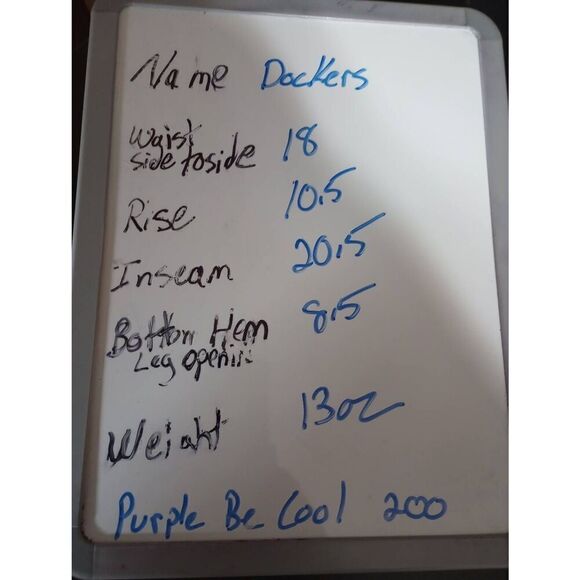 Name Dockers
Waist
side to side 18
Rise 10.5
Inseam 20.5
Bottom Hem 8.5
Leg opening
Weight 13oz
Purple Be Cool 200